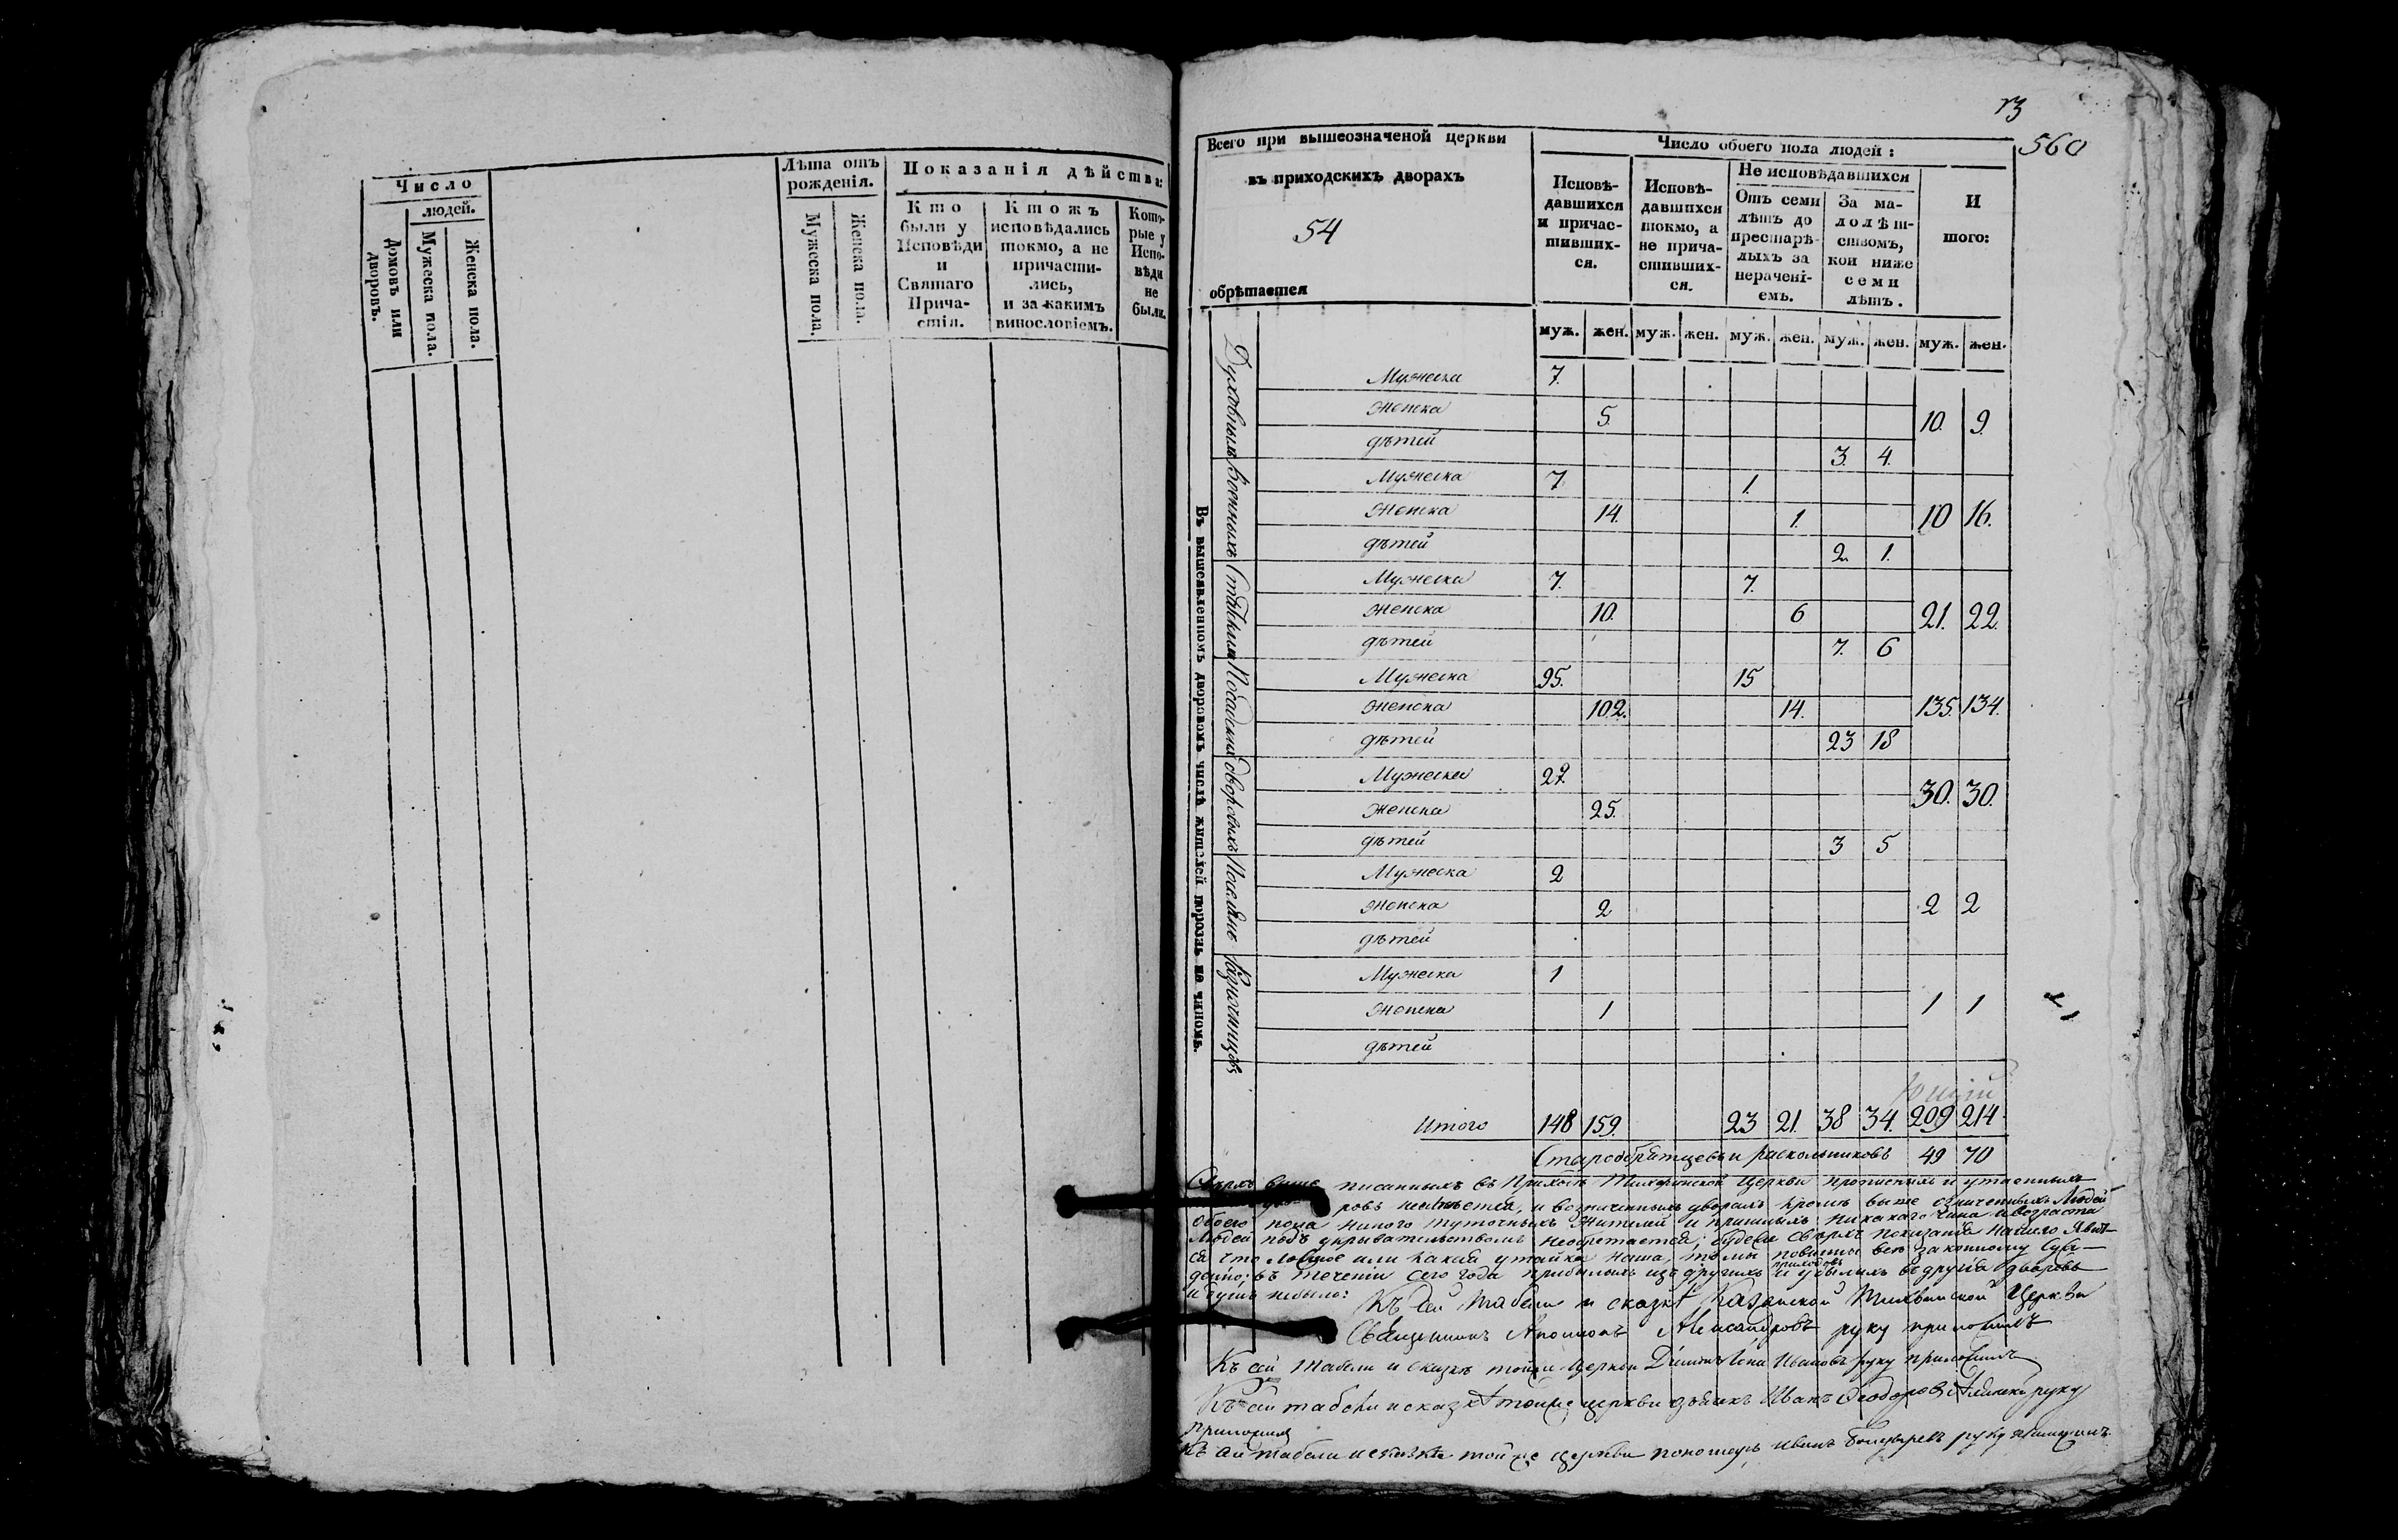 Число
людей.
Домовъ или дворовъ.
Мужеска пола.
Женска пола.
Лѣта отъ
рожденія.
Мужеска пола.
Женска пола.
Показанія дѣйства:
Кто
были у
Исповѣди
и
Святаго
Прича-
стія.
Ктожъ
исповѣдались
токмо, а не
причасти-
лись,
и за какимъ
винословіемъ.
Кото-
рые у
Испо-
вѣди
не
были.
73
560
Всего при вышеозначеной церкви
въ приходскихъ дворахъ
54
обрѣтается
Число обоего пола людей:
Исповѣ-
давшихся
и причас-
тивших-
ся.
Исповѣ-
давшихся
токмо, а
не прича-
стивших-
ся.
Не исповѣдавшихся
Отъ семи
лѣтъ до
престарѣ-
лыхъ за
нерачені-
емъ.
За ма-
лолѣт-
ствомъ,
кои ниже
семи
лѣтъ.
И
того:
муж. жен. муж. жен. муж. жен. муж. жен. муж. жен.
Въ вышеявленномъ дворовомъ числѣ жителей порознь по чиномъ.
Духовныхъ
Мужеска 7.
женска 5. 10. 9.
дѣтей 3. 4.
Военныхъ
Мужеска 7. 1.
женска 14. 1. 10 16.
дѣтей 2. 1.
Статскихъ
Мужеска 7. 7.
женска 10. 6 21. 22.
дѣтей 7. 6
Посадскихъ
Мужеска 95. 15
женска 102. 14. 135. 134.
дѣтей 23 18
дворовыхъ
Мужеска 27. 30. 30.
женска 25.
дѣтей 3 5
Поселяне
Мужеска 2
женска 2 2 2
дѣтей
Мужеска 1
женска 1 1 1
дѣтей
Итого 148 159. 23 21. 38 34. 209 214.
Старообрятцевъ и раскольниковъ 49 70
писанныхъ въ Приходѣ Тихвинской Церкви прописныхъ и утаенныхъ
кромѣ выше означенныхъ Людей
обоего пола никого туточныхъ жителей и пришлыхъ никакого чина и возраста
Людей подъ укрывательствомъ необретается; будеже сверхъ показанія нашего явит-
ся что ложное или какая утайка наша, то мы повинны всю законному суж-
денію; въ теченіи сего года прибылыхъ изъ другихъ приходовъ и убылыхъ въ другія дворовъ
и душъ небыло:
Къ сей табели и сказкѣ Казанской Тихвинской Церкви
Священникъ Александровъ руку приложилъ
Къ сей табели и сказкѣ тойже церкви Діаконъ Ивановъ руку приложилъ
Къ сей табели и сказкѣ тойже церкви дьячекъ Иванъ Феодоровъ руку
приложилъ
Къ сей табели и сказкѣ тойже церкви пономарь Иванъ руку приложилъ